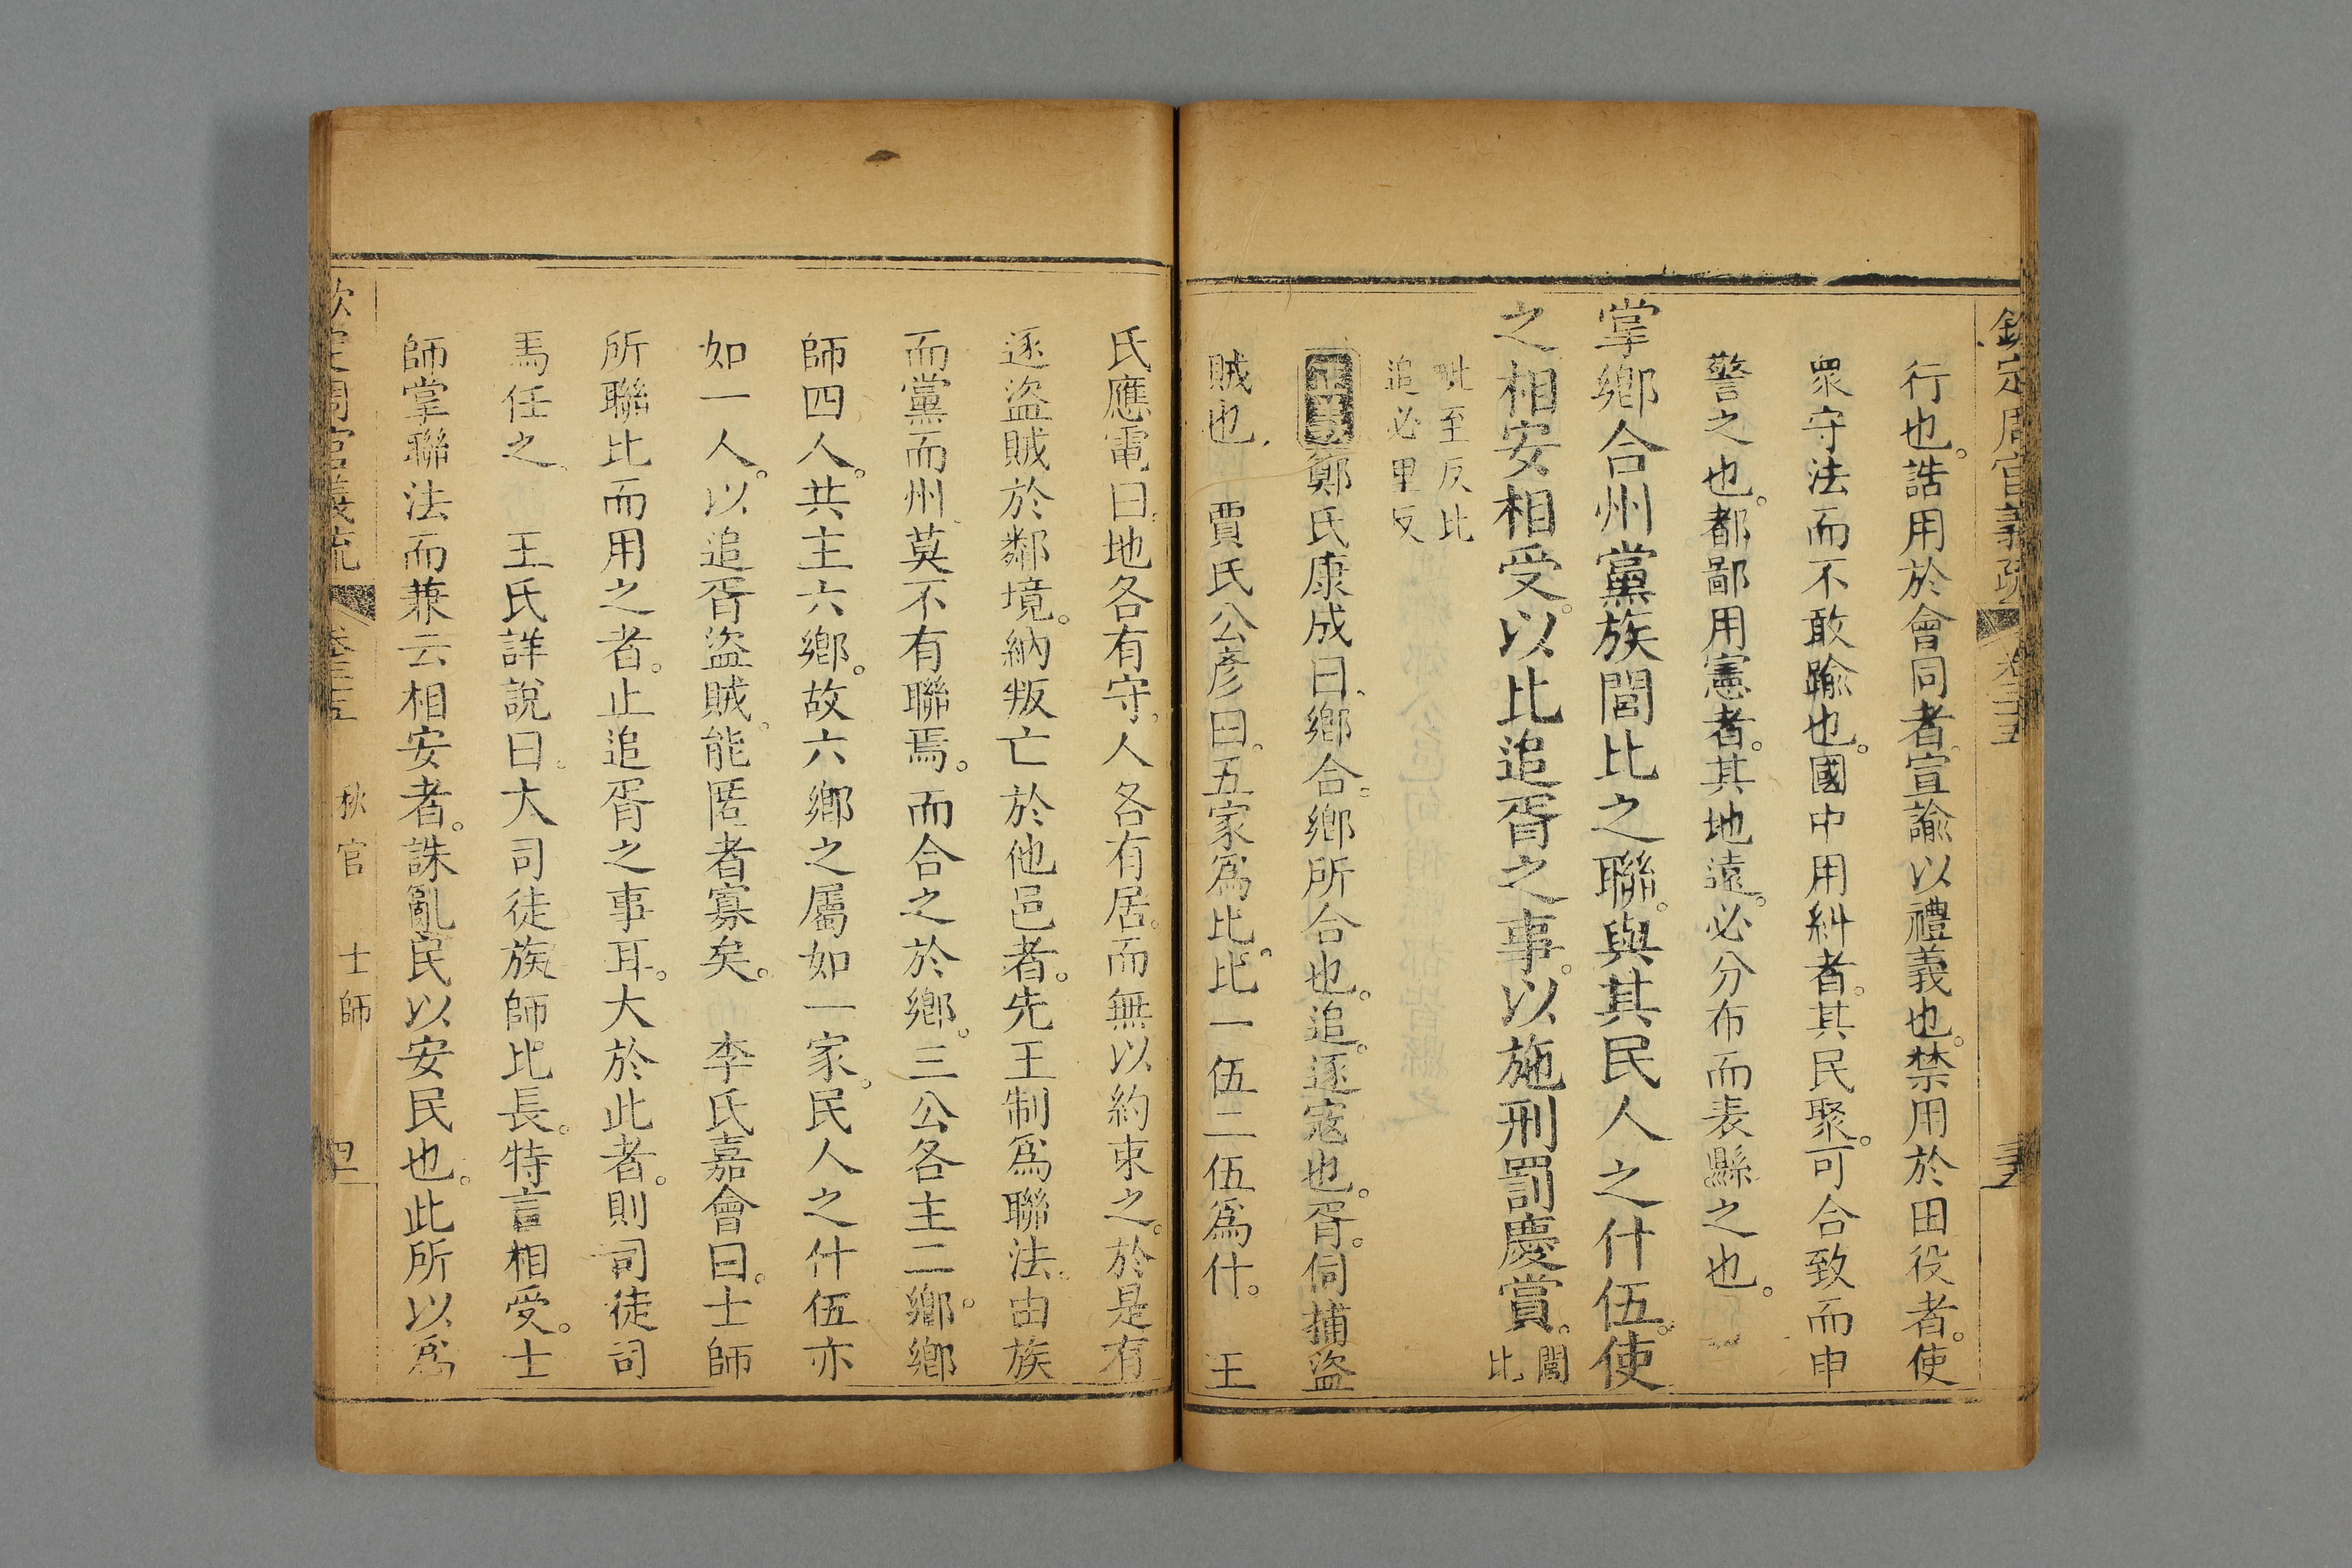 欽定周官義疏 卷三十五
行也。誥用於會同者。宣諭以禮義也。禁用於田役者。使
衆守法而不敢踰也。國中用糾者。其民聚。可合致而申
警之也。都鄙用憲者。其地遠。必分布而表縣之也。
掌鄉合州黨族閭比之聯。與其民人之什伍。使
之相安相受。以比追胥之事。以施刑罰慶賞。閭
比
毗至反比
追必里反
鄭氏康成曰。鄉合。鄉所合也。追。逐寇也。胥。伺捕盜
賊也。 賈氏公彦曰。五家爲比。比一伍二伍爲什。 王
氏應電曰。地各有守。人各有居。而無以約束之。於是有
逐盜賊於鄰境。納叛亡於他邑者。先王制爲聯法。由族
而黨而州。莫不有聯焉。而合之於鄉。三公各主二鄉。鄉
師四人。共主六鄉。故六鄉之屬如一家。民人之什伍亦
如一人。以追胥盜賊。能匿者寡矣。 李氏嘉會曰。士師
所聯比而用之者。止追胥之事耳。大於此者。則司徒司
馬任之。 王氏詳說曰。大司徒族師比長。特言相受。士
師掌聯法而兼云相安者。誅亂民以安民也。此所以爲
欽定周官義疏 卷三十五 秋官 士師